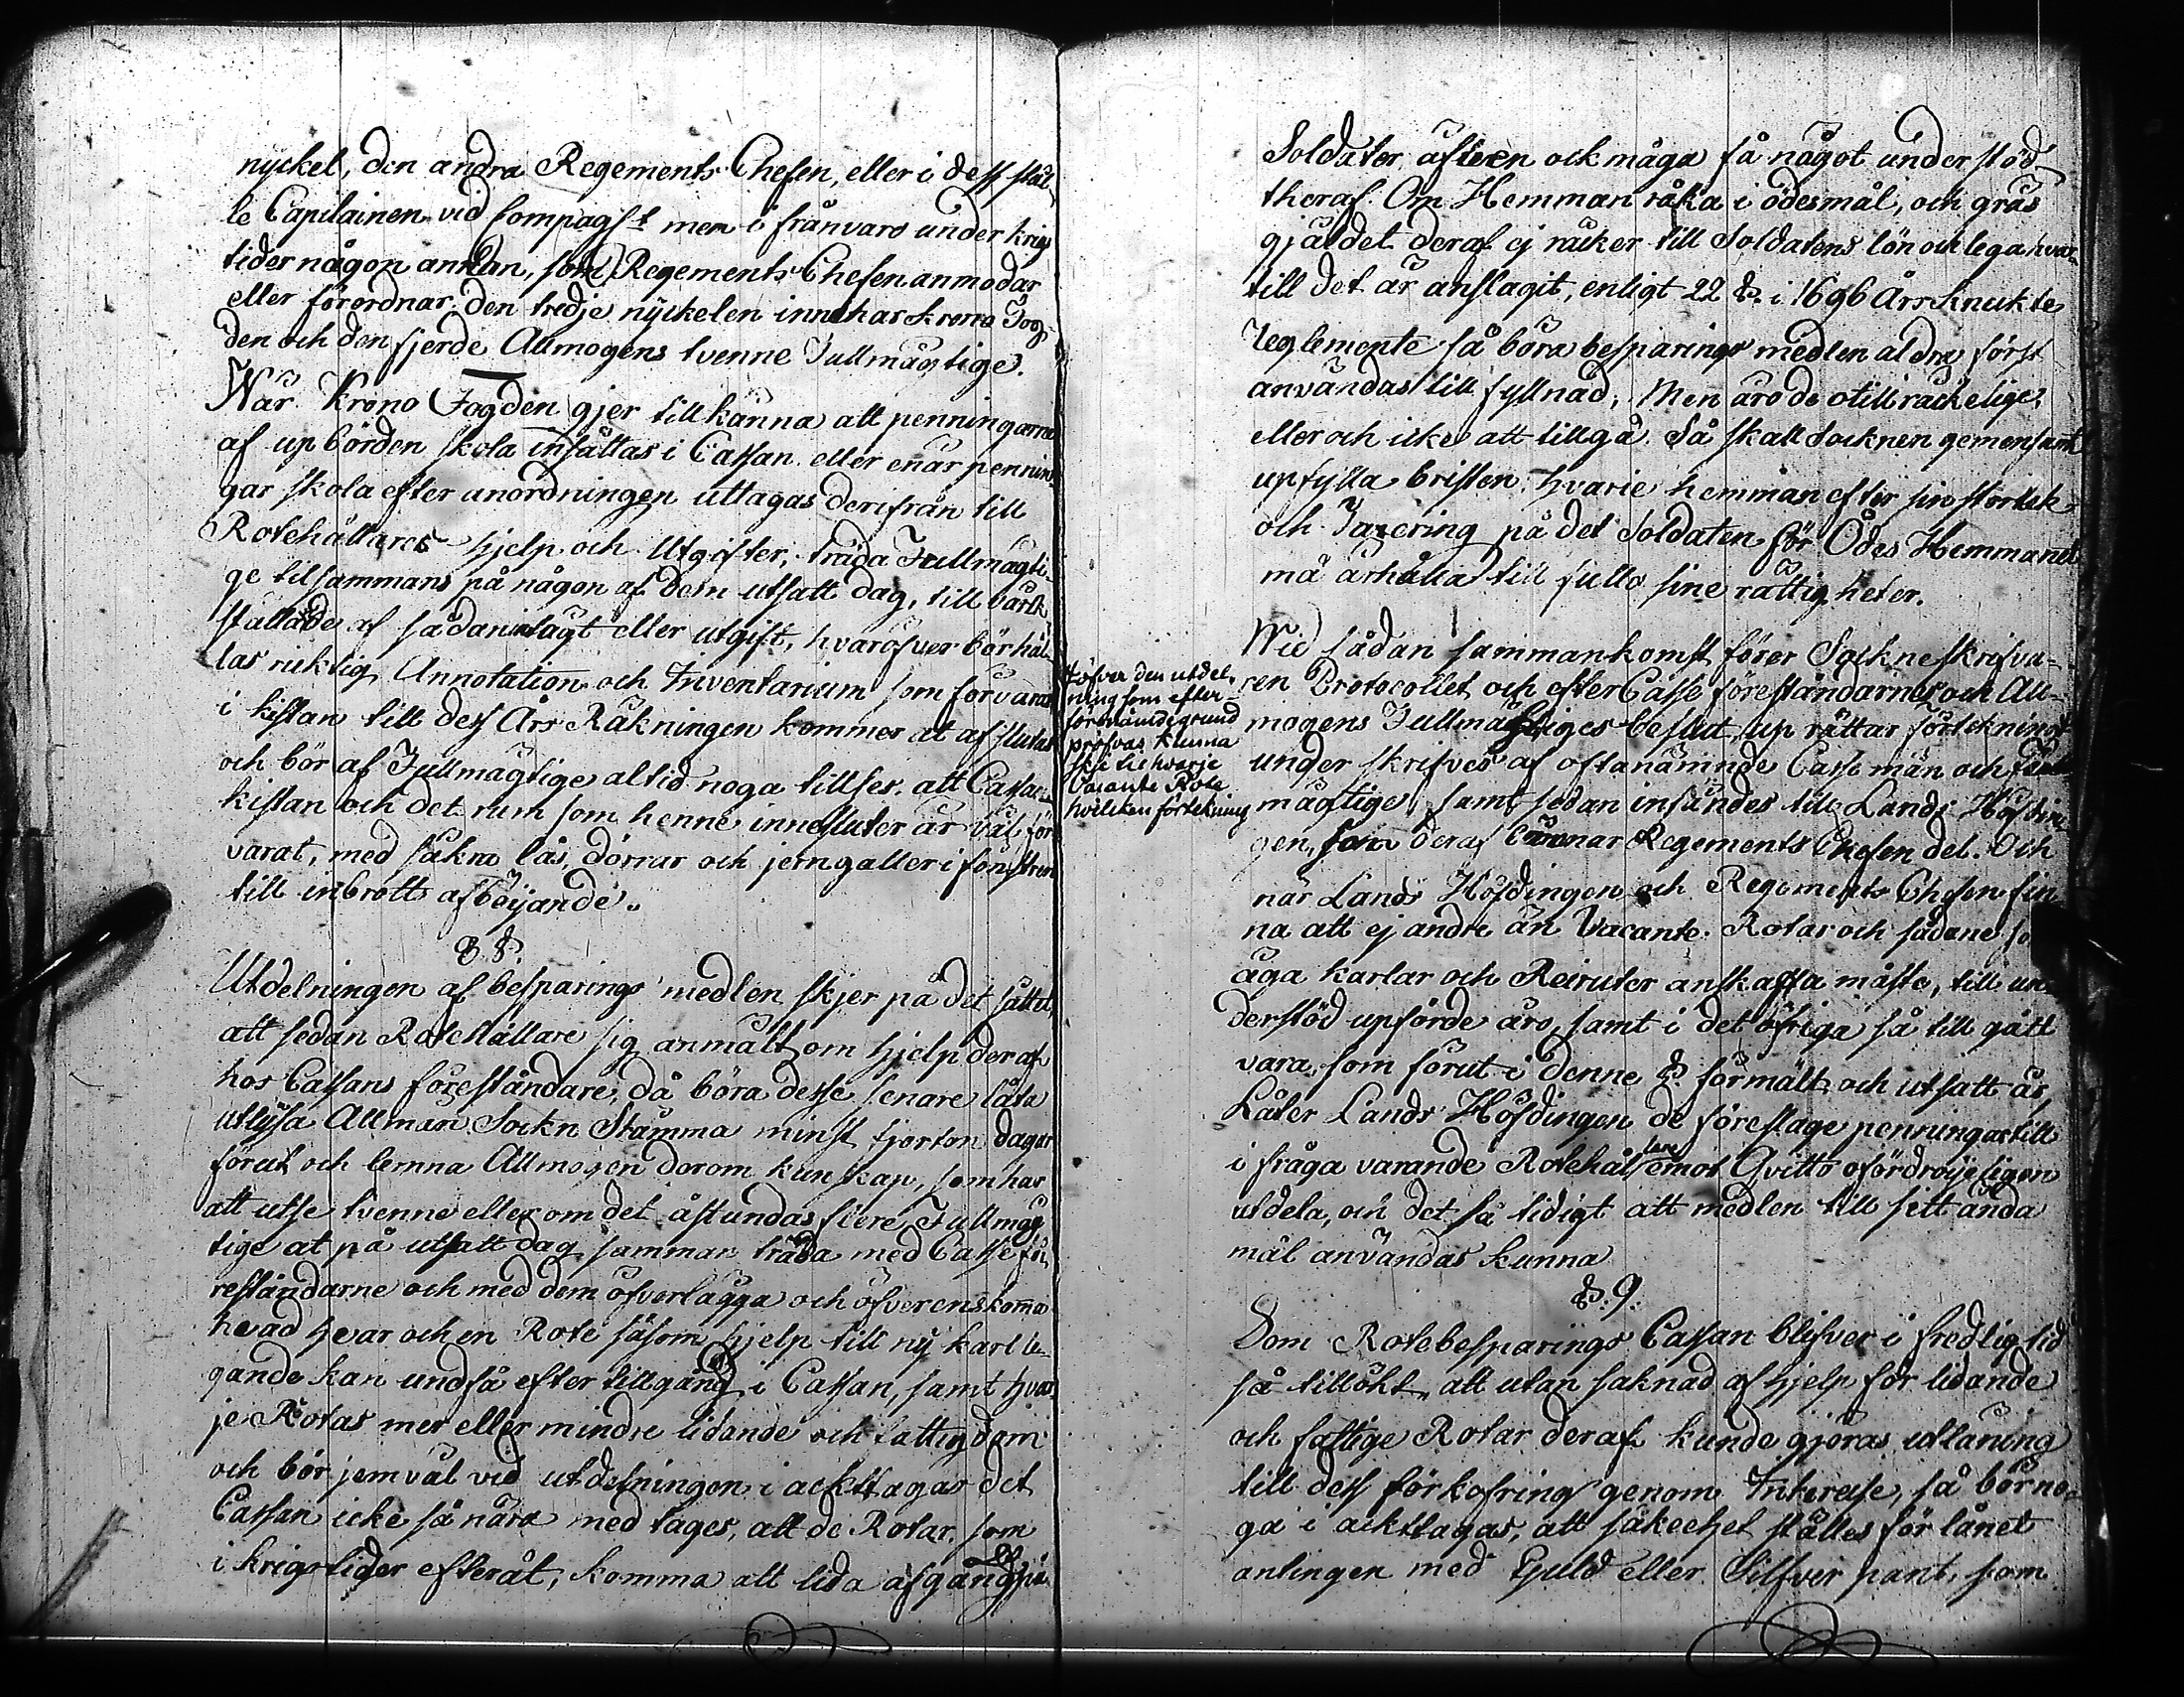 nyckel, den andra Regements Chefen, eller i dess stäl
le Capitainen vid Compagt men i frånvaro under krigs
tider någon annan, som Regements Chefen anmodar
eller förordnar, den tredje nyckelen innehar krono Fog
den och den fjerde Allmogens tvenne Fullmägtige.
När Krono Fogden gjer tillkänna att penningarne
af upbörden skola insättas i Cassan eller enär pennin
gar skola efter anordningen uttagas derifrån till
Rotehållares hjelp och Utgifter, träda Fullmägti
ge tilsammans på någon af dem utsatt dag, till värck
ställande af sådan intägt eller utgift, hvaröfver bör hål
las ricktig Annotation och Inventarium som förvaras
i kistan till dess Års Räkningen kommer at afslutas
och bör af Fullmägtige altid noga tillses, att Cassa
kistan och det rum som henne innesluter är väl för
varat, med säkra lås, dörrar och jerngaller i fönstren
till inbrotts afböijande.
8 §.
Utdelningen af besparings medlen skjer på det sättet,
att sedan Rotehållare sig anmält om hjelp deraf
hos Cassans föreståndare, då böra desse senare låta
utlysa Allmän Sockn Stämma minst fjorton dagar
förut och lemna Allmogen derom kunskap, som har
att utse tvenne eller om det åstundas flere Fullmäg
tige at på utsatt dag samman träda med Casse fö
reståndarne och med dem öfverlägga och öfverenskomma
hvad hvar och en Rote såsom hjelp till ny karl le
gande kan undfå efter tillgång i Cassan, samt hvar
je Rotas mer eller mindre lidande och fattigdom
och bör jemväl vid utdelningen i ackttagas det
Cassan icke så nära medtages, att de Rotar, som
i krigstider efteråt, komma att lida afgång på
Soldater, äfven ock måga få något under stöd
theraf. Om Hemman råka i ödesmål, och gräs
gjäldet deraf ej räcker till Soldatens lön och lega, hvar
till det är anslagit, enligt 22 §. i 1696 Års Knekte
Reglemente så böra besparings medlen aldra först
användas till fyllnad, Men äro de otillräckelige,
eller och icke att tillgå, Så skall Socknen gemensamt
upfylla bristen, hvarje hemman efter sin storlek
och Taxering på det Soldaten för Ödes Hemmanet
må ärhålla till fullo sine rättigheter.
Wid sådan sammankomst förer Sockneskrifva-
ren Protocollet och efter Casse föreståndarnes och All-
mogens Fullmägtiges beslut, up rättar förtekning
under skrifves af oftanämnde Casse män och Full
mägtige, samt sedan insändes till Lands Höfdin
gen, som deraf lämnar Regements Chefen del. Och
när Lands Höfdingen och Regements Chefen fin
na att ej andre än Vacante Rotar och sådane so
äga karlar och Recruter anskaffa måste, till un
derstöd upförde äro, samt i det öfriga så till gått
vara, som förut i denne §. förmält och utsatt är,
Låter Lands Höfdingen de föreslagne penningar till
i fråga varande Rotehållare emot Qvitto ofördröijeligen
utdela, och det så tidigt att medlen till sitt ända
mål användas kunna
# öfver den utdel-
ning som efter
förnämde grund
pröfvas kunna
ske till hvarje
Vacante Rote
hvilcken förtekning
§: 9.
Som Rotebesparings Cassan blifver i fredlig tid
så tillökt, att utan saknad af hjelp för lidande
och fattige Rotar deraf kunde gjöras utlåning
till dess förkofring genom Interesse, så bör no
ga i ackttagas, att säkerhet ställes för lånet
antingen med Guld eller Silfver pant, som